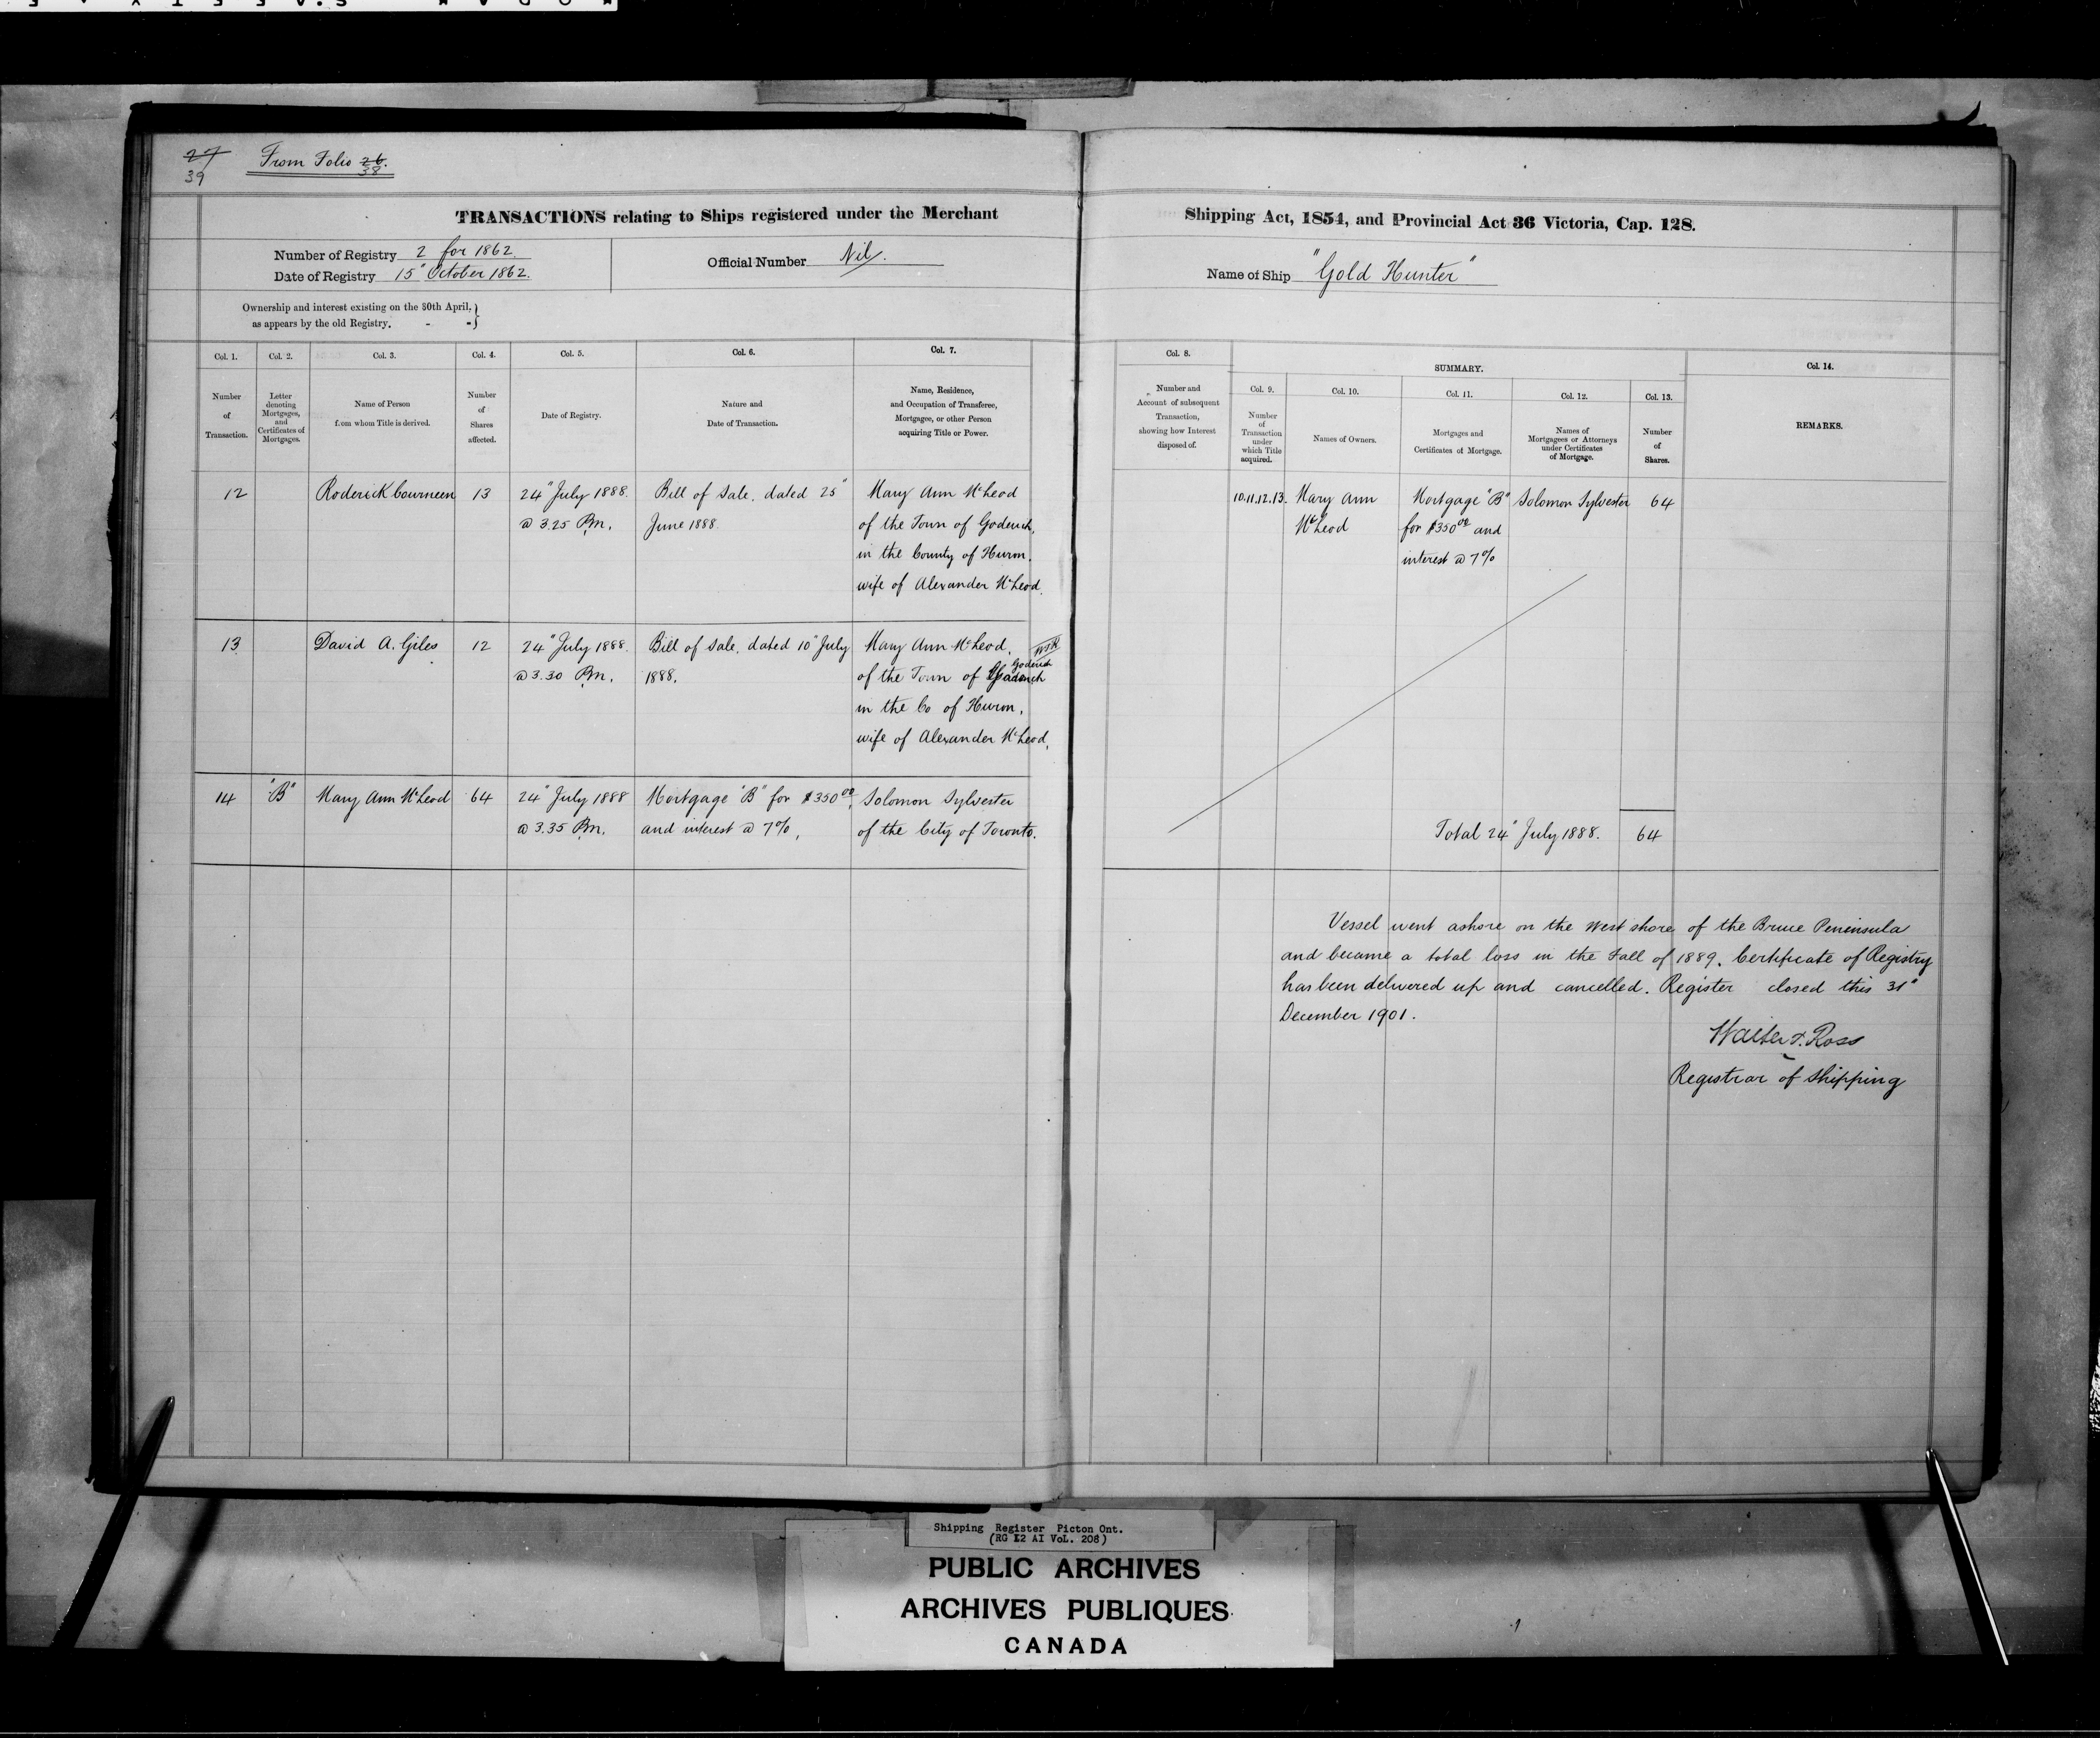 27
39
From Folio 26.
38
TRANSACTIONS relating to Ships registered under the Merchant
Number of Registry 2 for 1862.
Date of Registry 15" October 1862.
Official Number Nil.
Ownership and interest existing on the 30th April,
as appears by the old Registry. - -
Col. 1.
Number
of
Transaction.
Col. 2.
Letter
denoting
Mortgages,
and
Certificates of
Mortgages.
Col. 3.
Name of Person
from whom Title is derived.
Col. 4.
Number
of
Shares
affected.
Col. 5.
Date of Registry.
Col. 6.
Nature and
Date of Transaction.
Col. 7.
Name, Residence,
and Occupation of Transferee,
Mortgagee, or other Person
acquiring Title or Power.
12
Roderick
13
24" July 1888.
@ 3.25 Pm.
Bill of Sale, dated 25"
June 1888
Mary Ann McLeod
of the Town of Goderich,
in the County of Huron.
wife of Alexander McLeod.
13
David A. Giles
12
24" July 1888.
@ 3.30 Pm.
Bill of Sale, dated 10" July
1888.
Mary Ann McLeod,
WTR
Goderich
of the Town of
in the Co of Huron,
wife of Alexander McLeod,
14
"B"
Mary Ann McLeod
64
24" July 1888
@ 3.35 Pm.
Mortgage "B" for $350 00,
and interest @ 7%,
Solomon Sylvester
of the City of Toronto.
Shipping Act, 1854, and Provincial Act 36 Victoria, Cap. 128.
Name of Ship "Gold Hunter"
Col. 8.
Number and
Account of subsequent
Transaction,
showing how Interest
disposed of.
SUMMARY.
Col. 9.
Number
of
Transaction
under
which Title
acquired.
Col. 10.
Names of Owners.
Col. 11.
Mortgages and
Certificates of Mortgage.
Col. 12.
Names of
Mortgagees or Attorneys
under Certificates
of Mortgage.
Col. 13.
Number
of
Shares.
Col. 14.
REMARKS.
10.11.12.13.
Mary Ann
McLeod
Mortgage "B"
for $350 00 and
interest @ 7%
Solomon Sylvester
64
Total 24" July 1888.
64
Vessel went ashore on the West shore of the Bruce Peninsula
and became a total loss in the Fall of 1889. Certificate of Registry
has been delivered up and cancelled. Register closed this 31"
December 1901.
Walter T. Ross
Registrar of Shipping
Shipping Register Picton Ont.
(RG 12 AI VoL. 208)
PUBLIC ARCHIVES
ARCHIVES PUBLIQUES
CANADA